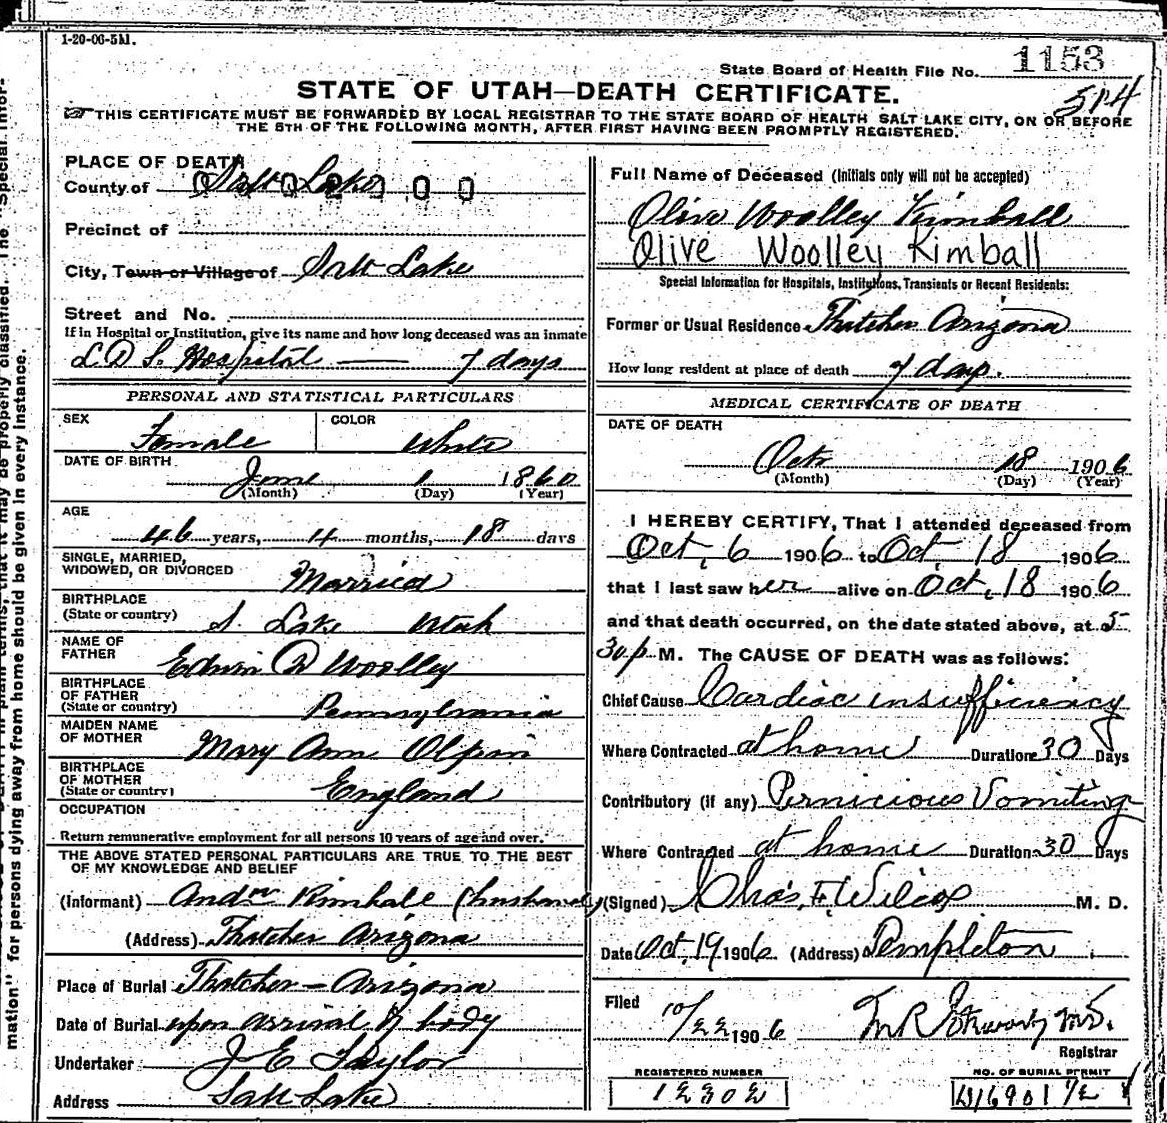 1-20-06-5M.
State Board of Health File No. 1153
STATE OF UTAH—DEATH CERTIFICATE.
514
THIS CERTIFICATE MUST BE FORWARDED BY LOCAL REGISTRAR TO THE STATE BOARD OF HEALTH SALT LAKE CITY, ON OR BEFORE
THE 5TH OF THE FOLLOWING MONTH, AFTER FIRST HAVING BEEN PROMPTLY REGISTERED.
PLACE OF DEATH
County of Salt Lake
Precinct of
City, Town or Village of Salt Lake
Street and No.
If in Hospital or Institution, give its name and how long deceased was an inmate
L D S. Hospital — 7 days
PERSONAL AND STATISTICAL PARTICULARS
SEX Female COLOR White
DATE OF BIRTH June 1 1860
(Month) (Day) (Year)
AGE
46 years, 4 months, 18 days
SINGLE, MARRIED,
WIDOWED, OR DIVORCED Married
BIRTHPLACE
(State or country) S. Lake Utah
NAME OF
FATHER Edwin D Woolley
BIRTHPLACE
OF FATHER
(State or country) Pennsylvania
MAIDEN NAME
OF MOTHER Mary Ann Olpin
BIRTHPLACE
OF MOTHER
(State or country) England
OCCUPATION
Return remunerative employment for all persons 10 years of age and over.
THE ABOVE STATED PERSONAL PARTICULARS ARE TRUE TO THE BEST
OF MY KNOWLEDGE AND BELIEF
(Informant) Andw Kimball (husband)
(Address) Thatcher Arizona
Place of Burial Thatcher - Arizona
Date of Burial upon arrival of body
Undertaker J E Taylor
Address Salt Lake
Full Name of Deceased (Initials only will not be accepted)
Olive Woolley Kimball
Olive Woolley Kimball
Special Information for Hospitals, Institutions, Transients or Recent Residents:
Former or Usual Residence Thatcher Arizona
How long resident at place of death 7 days.
MEDICAL CERTIFICATE OF DEATH
DATE OF DEATH
Oct 18 1906
(Month) (Day) (Year)
I HEREBY CERTIFY, That I attended deceased from
Oct, 6 1906 to Oct 18 1906
that I last saw her alive on Oct, 18 1906
and that death occurred, on the date stated above, at 5
30 p M. The CAUSE OF DEATH was as follows:
Chief Cause Cardiac insufficiency
Where Contracted at home Duration 30 Days
Contributory (if any) Pernicious Vomiting
Where Contracted at home Duration 30 Days
(Signed) Chas. F. Wilcox M. D.
Date Oct, 19 1906 (Address) Templeton
Filed 10/22 1906
Registrar
REGISTERED NUMBER
12302
NO. OF BURIAL PERMIT
mation" for persons dying away from home should be given in every instance.